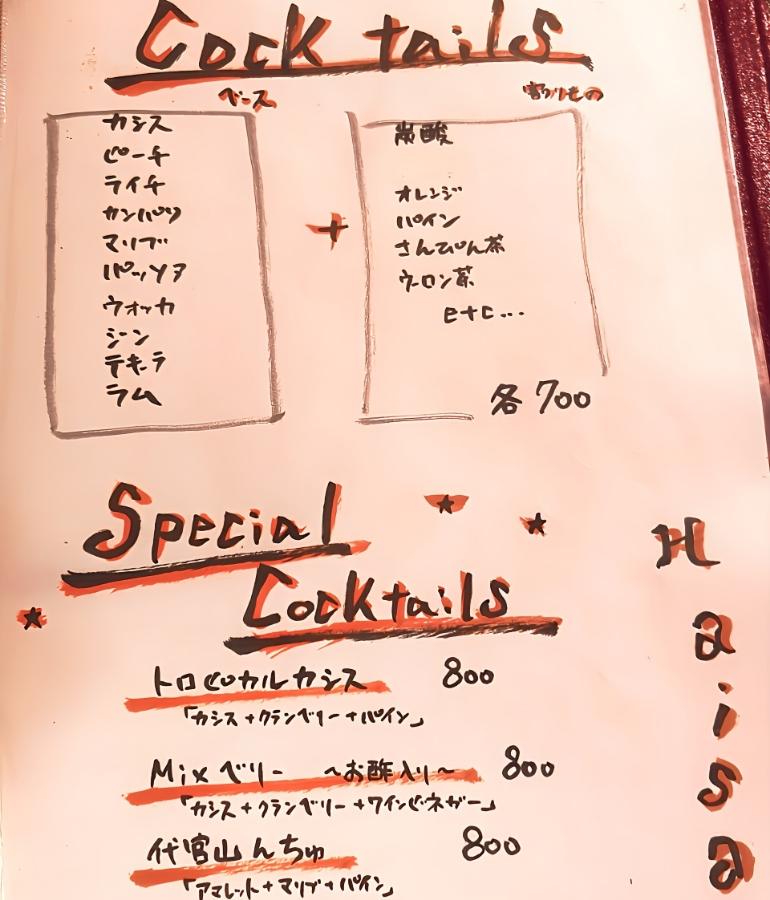 Cocktails
ベース
割りもの
カシス
ピーチ
ライチ
カンパリ
マリブ
パッソア
ウォッカ
ジン
テキーラ
ラム
+
炭酸
オレンジ
パイン
さんぴん茶
ウーロン茶
etc...
各 700
Special
Cocktails
トロピカルカシス 800
「カシス+クランベリー+パイン」
Mixベリー ~お酢入り~ 800
「カシス+クランベリー+ワインビネガー」
代官山んちゅ 800
「アマレット+マリブ+パイン」
Haisa